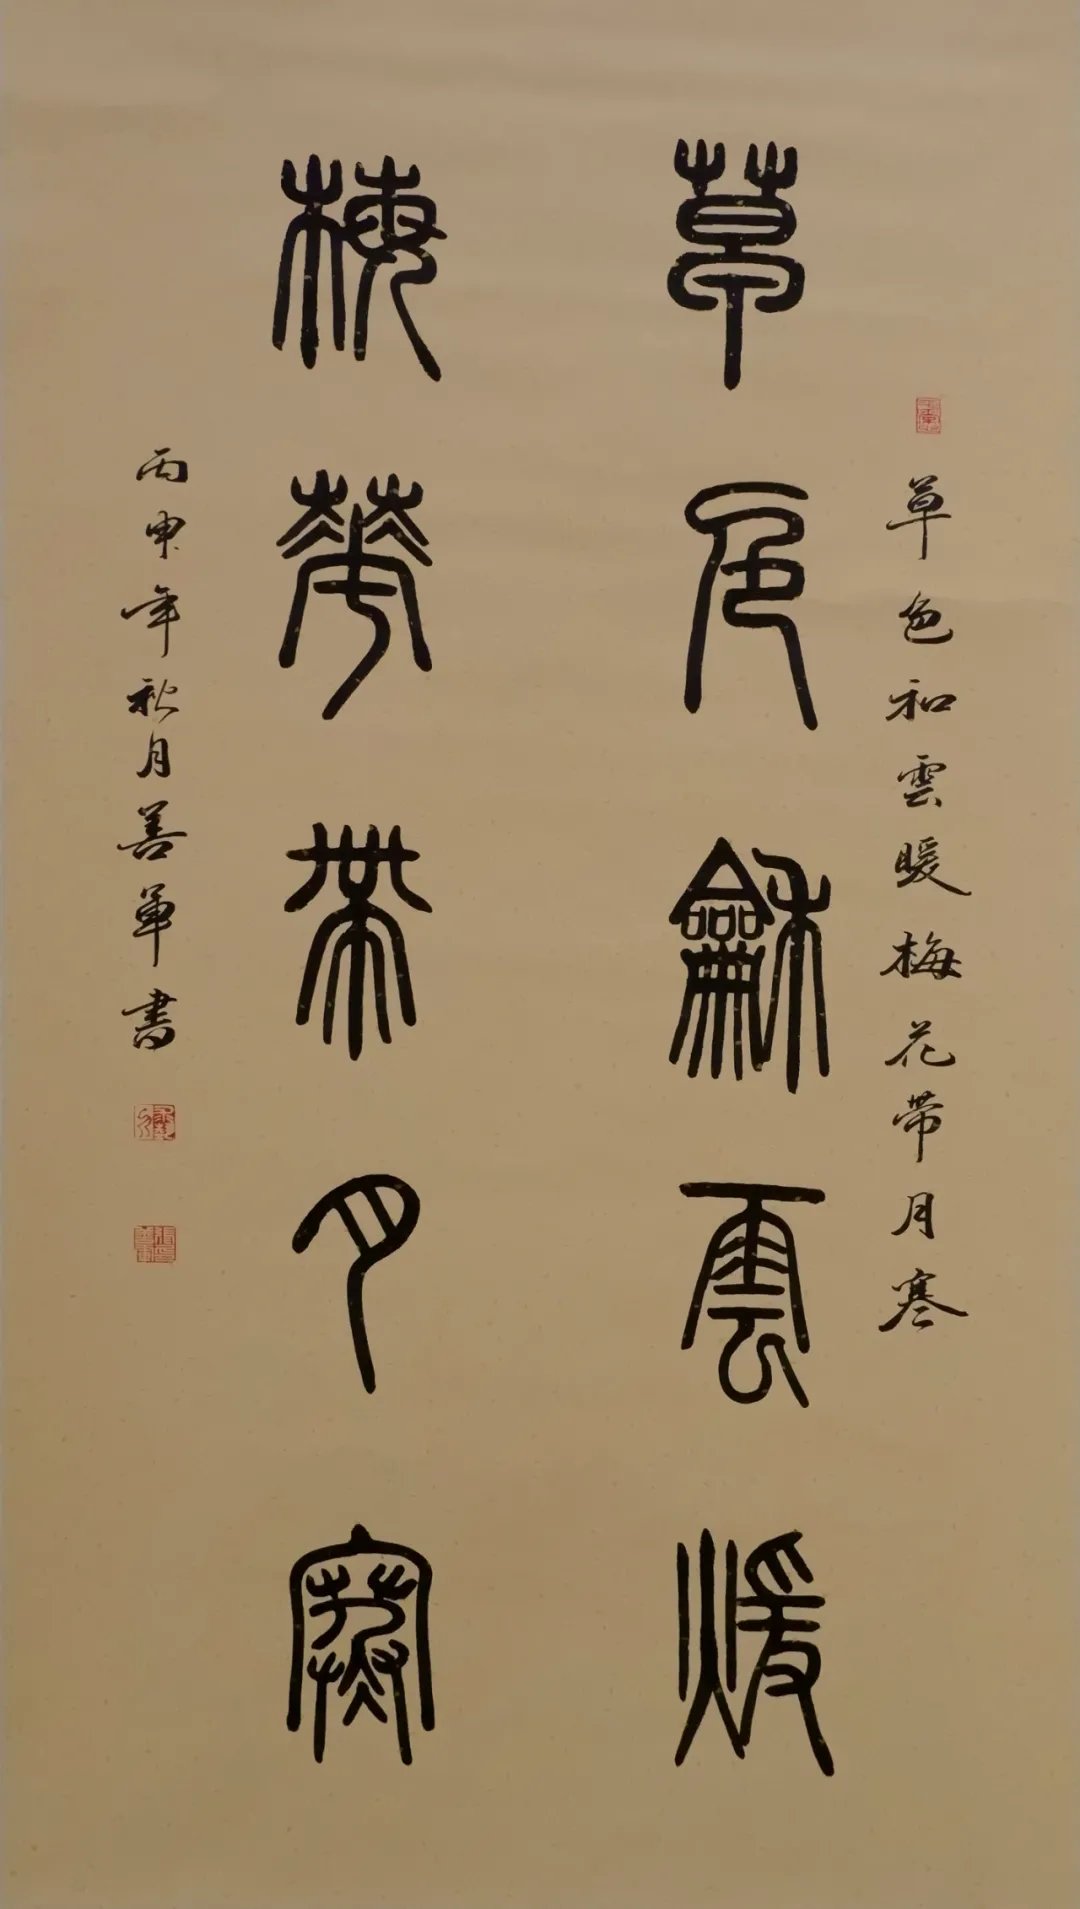 草色龢雲煖
梅華帶月寒
草色和雲暖梅花带月寒
丙申年秋月善軍書